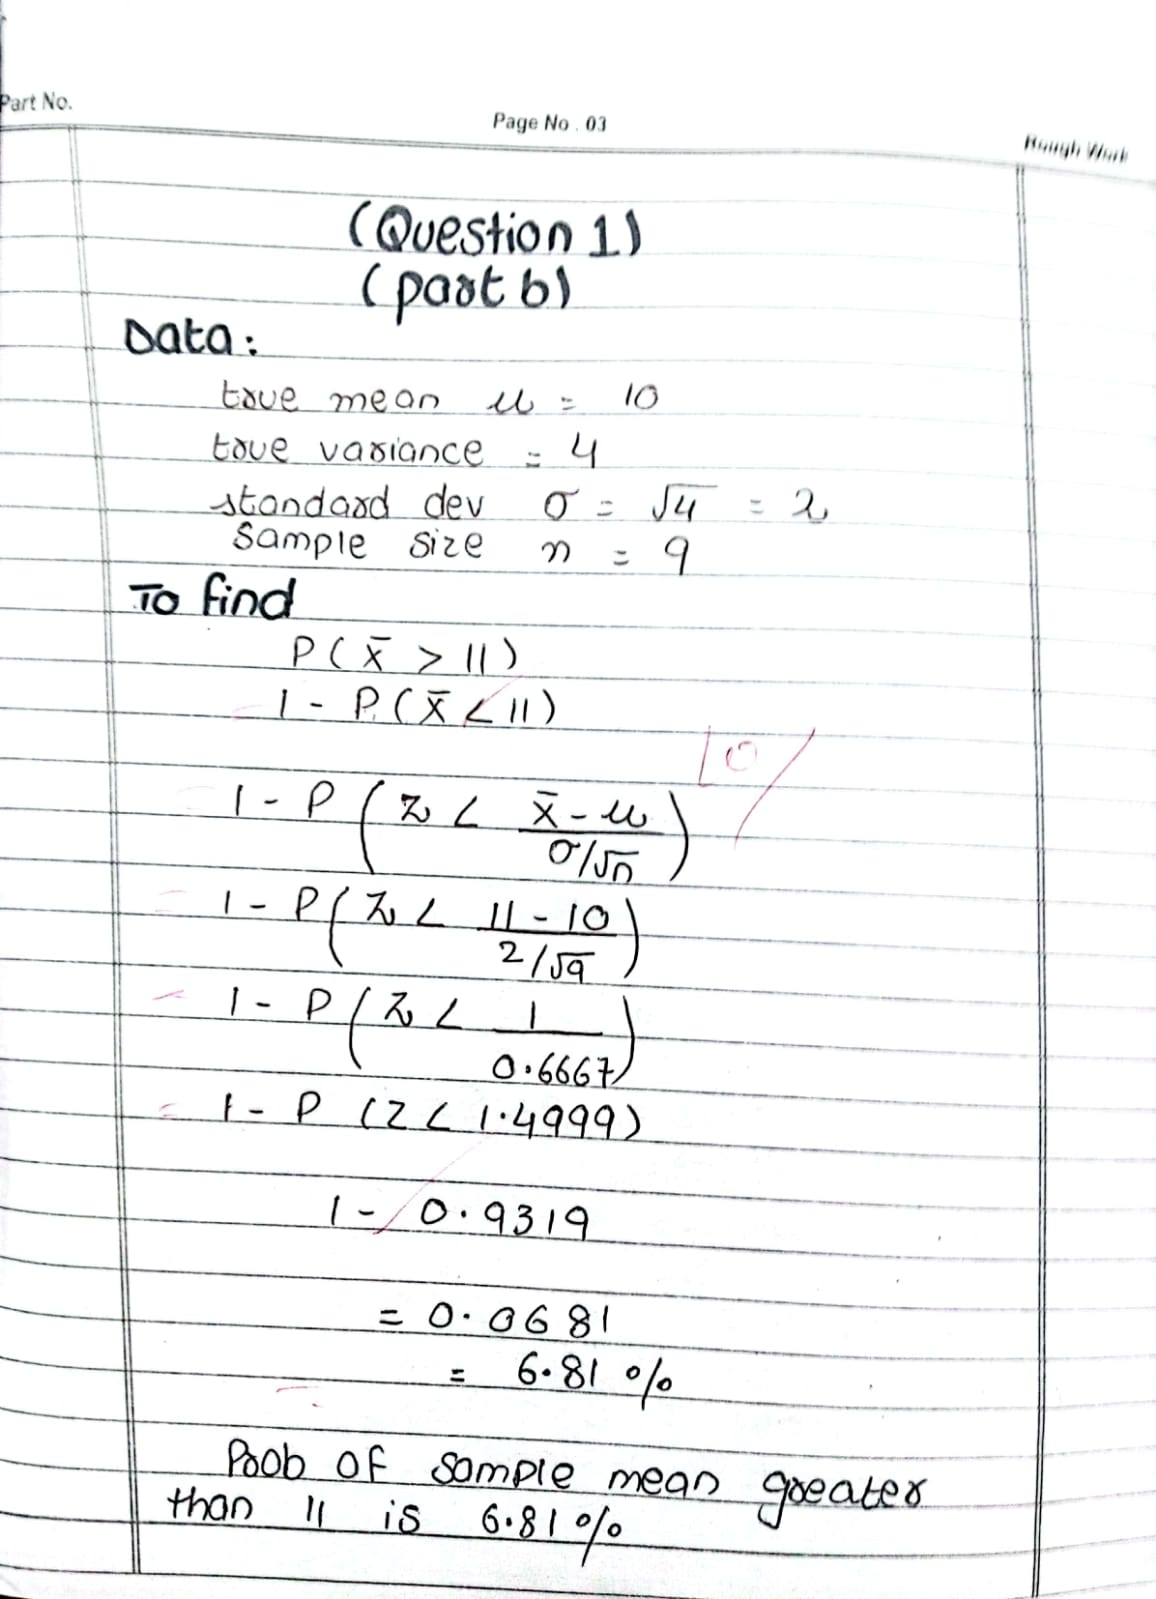 Part No.
Page No. 03
Rough Work
(Question 1)
(part b)
Data:
true mean μ = 10
true variance = 4
standard dev σ = √4 = 2
Sample size n = 9
To find
P(x̄ > 11)
= 1 - P(x̄ < 11)
10/
1 - P(z < (x̄ - μ)/(σ/√n))
= 1 - P(z < (11 - 10)/(2/√9))
= 1 - P(z < 1/0.6667)
= 1 - P(z < 1.4999)
1 - 0.9319
= 0.0681
= 6.81 %
Prob of sample mean greater
than 11 is 6.81%